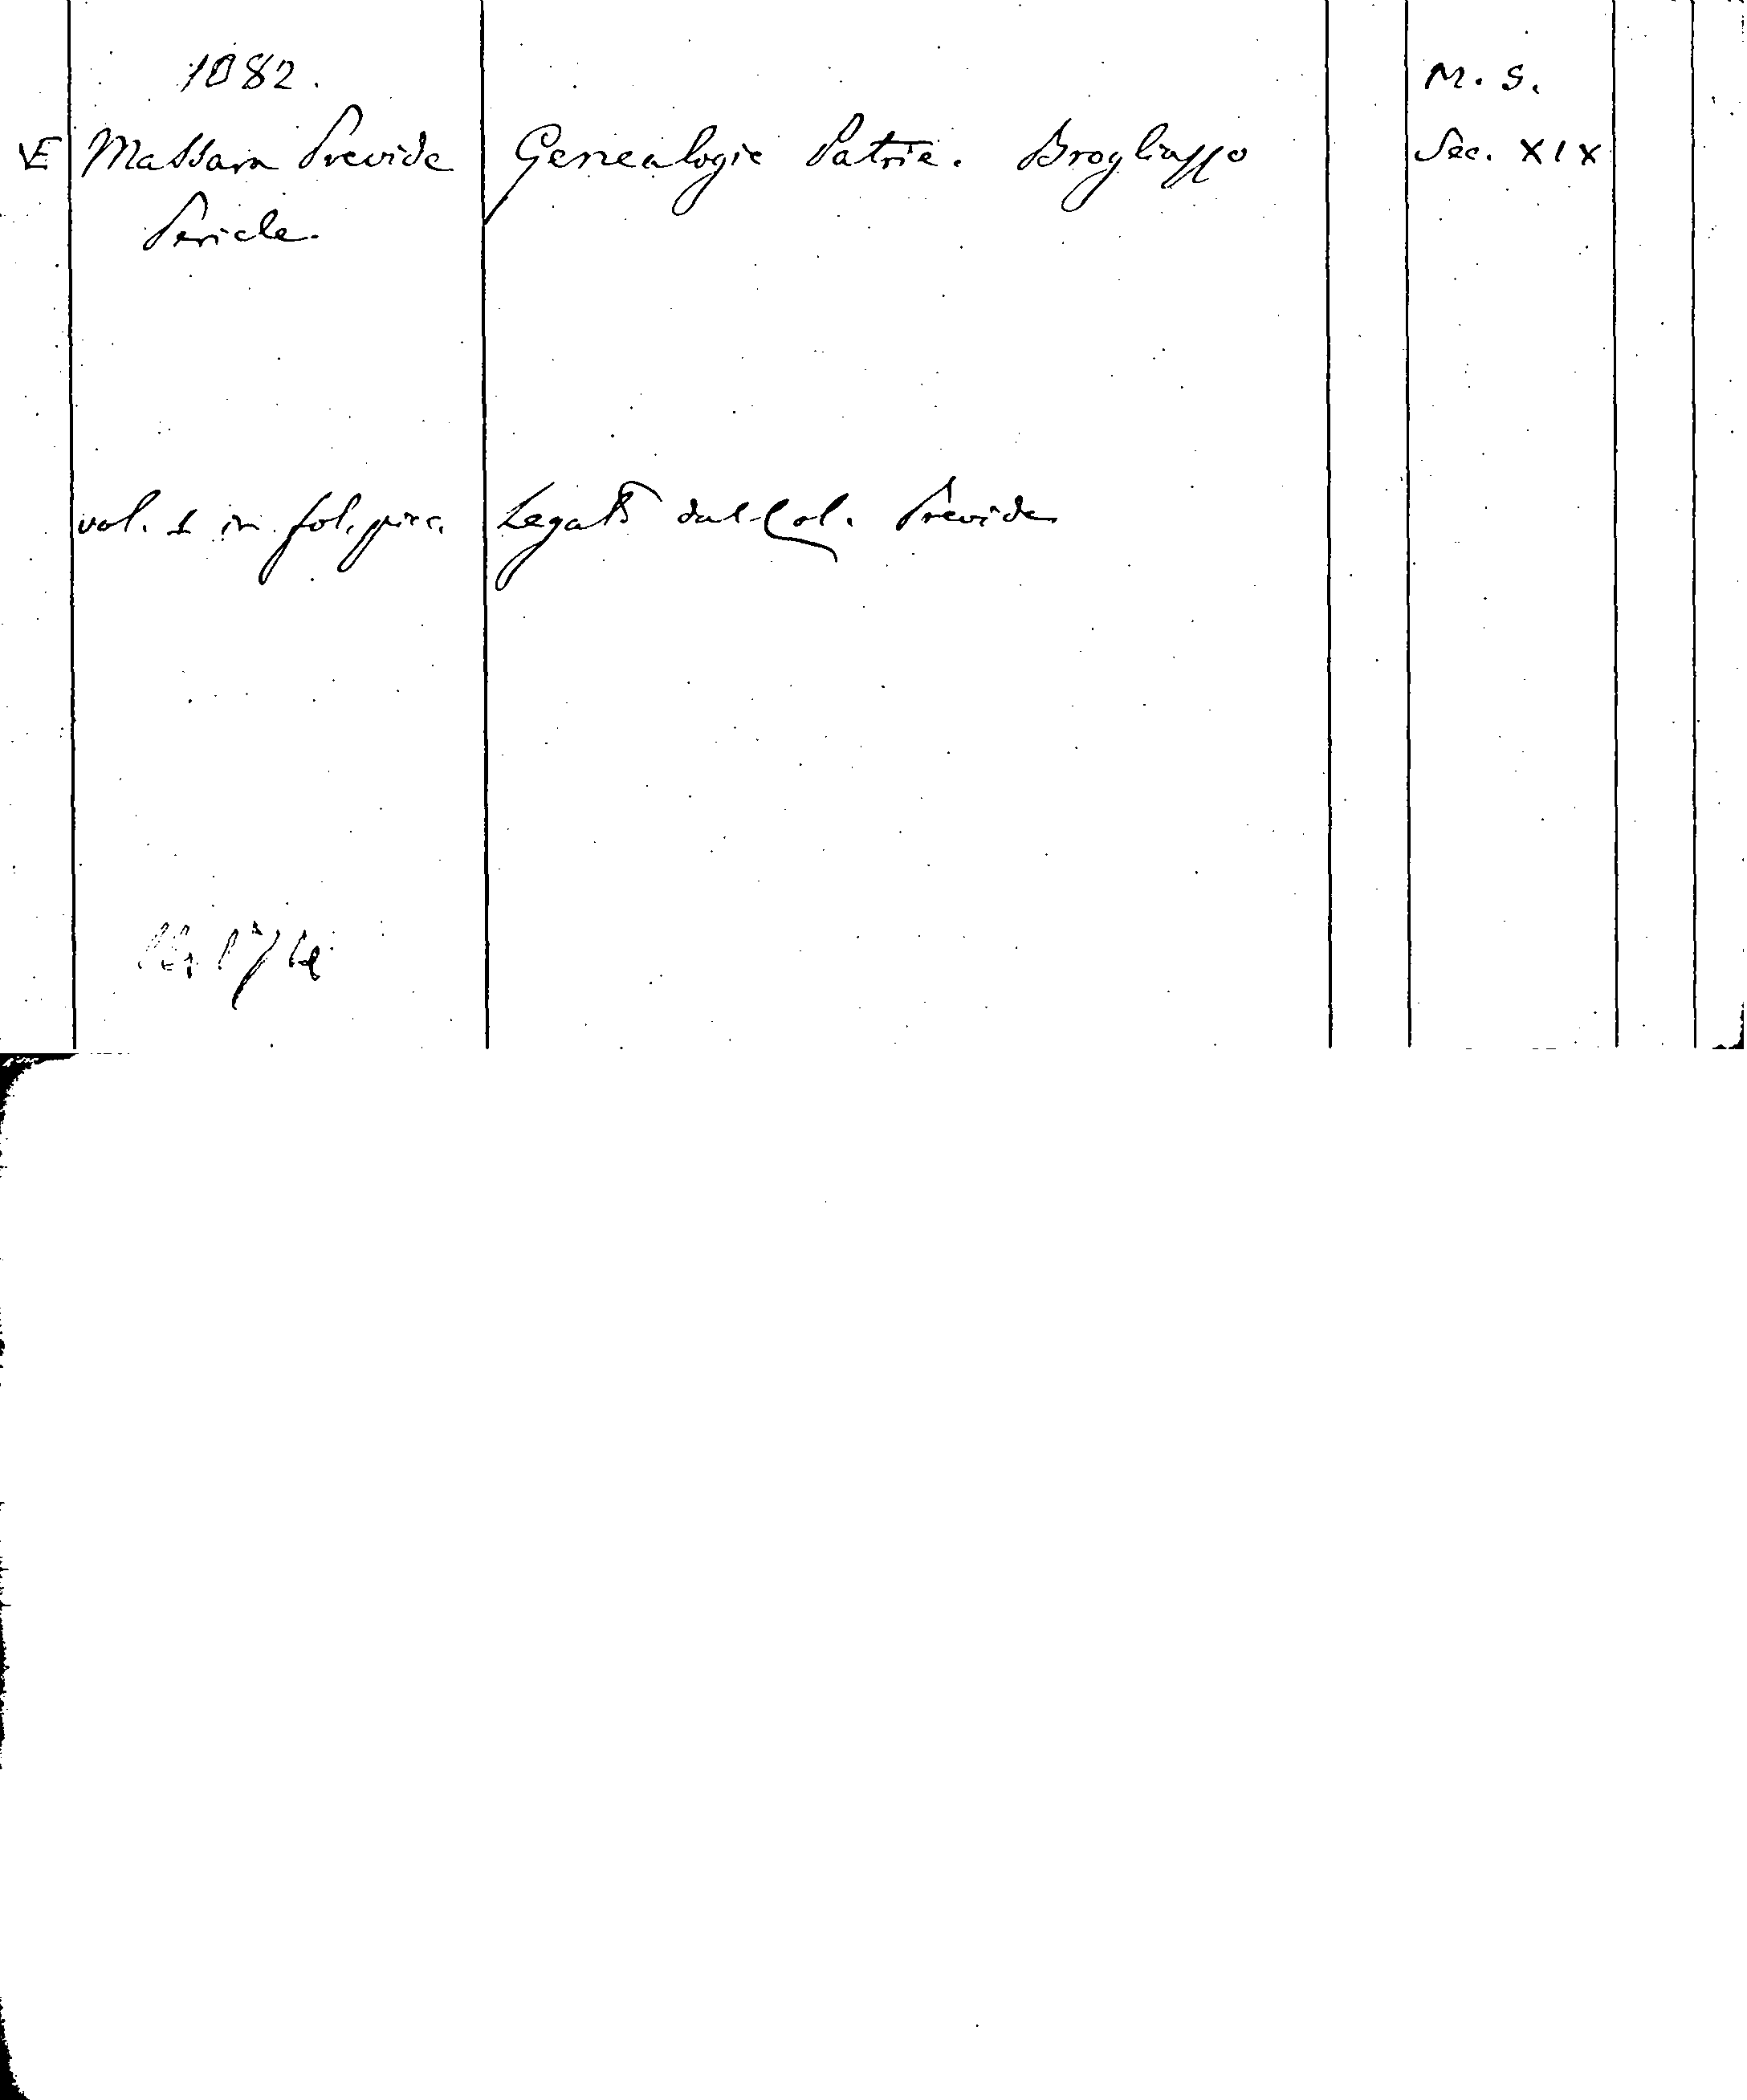 1082. M. S.
VE Massara Previde Genealogie Patrie. Brogliasso Sec. XIX
Pericle.
vol. 1 in fol. picc. Legato dal Col. Previde